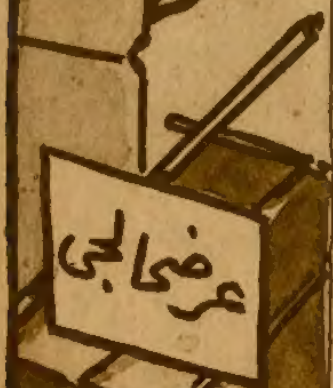 عرضحالجی